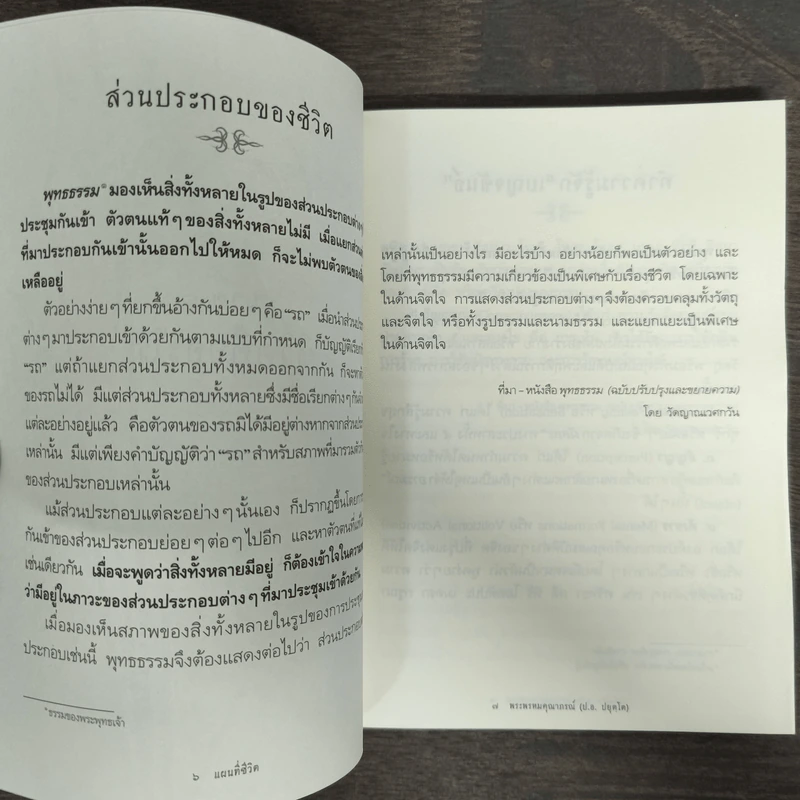 ส่วนประกอบของชีวิต
พุทธธรรม* มองเห็นสิ่งทั้งหลายในรูปของส่วนประกอบต่างๆ
ประชุมกันเข้า ตัวตนแท้ๆ ของสิ่งทั้งหลายไม่มี เมื่อแยกส่วน
ที่มาประกอบกันเข้านั้นออกไปให้หมด ก็จะไม่พบตัวตนของ
เหลืออยู่
ตัวอย่างง่ายๆ ที่ยกขึ้นอ้างกันบ่อยๆ คือ “รถ” เมื่อนำส่วน
ต่างๆ มาประกอบเข้าด้วยกันตามแบบที่กำหนด ก็บัญญัติเรียก
“รถ” แต่ถ้าแยกส่วนประกอบทั้งหมดออกจากกัน ก็จะหา
ของรถไม่ได้ มีแต่ส่วนประกอบทั้งหลายซึ่งมีชื่อเรียกต่างๆ กัน
แต่ละอย่างอยู่แล้ว คือตัวตนของรถมิได้มีอยู่ต่างหากจากส่วน
เหล่านั้น มีแต่เพียงคำบัญญัติว่า “รถ” สำหรับสภาพที่มารวมตัว
ของส่วนประกอบเหล่านั้น
แม้ส่วนประกอบแต่ละอย่างๆ นั้นเอง ก็ปรากฏขึ้นโดย
กันเข้าของส่วนประกอบย่อยๆ ต่อๆ ไปอีก และหาตัวตนที่แท้
เช่นเดียวกัน เมื่อจะพูดว่าสิ่งทั้งหลายมีอยู่ ก็ต้องเข้าใจในความ
ว่ามีอยู่ในภาวะของส่วนประกอบต่างๆ ที่มาประชุมเข้าด้วยกัน
เมื่อมองเห็นสภาพของสิ่งทั้งหลายในรูปของการประชุม
ประกอบเช่นนี้ พุทธธรรมจึงต้องแสดงต่อไปว่า ส่วนประกอบ
* ธรรมของพระพุทธเจ้า
๖ แผนที่ชีวิต
เหล่านั้นเป็นอย่างไร มีอะไรบ้าง อย่างน้อยก็พอเป็นตัวอย่าง และ
โดยที่พุทธธรรมมีความเกี่ยวข้องเป็นพิเศษกับเรื่องชีวิต โดยเฉพาะ
ในด้านจิตใจ การแสดงส่วนประกอบต่างๆ จึงต้องครอบคลุมทั้งวัตถุ
และจิตใจ หรือทั้งรูปธรรมและนามธรรม และแยกแยะเป็นพิเศษ
ในด้านจิตใจ
ที่มา – หนังสือ พุทธธรรม (ฉบับปรับปรุงและขยายความ)
โดย วัดญาณเวศกวัน
๗ พระพรหมคุณาภรณ์ (ป.อ. ปยุตฺโต)